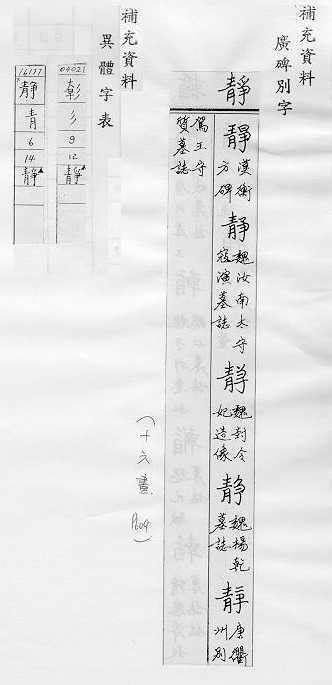 補充資料
廣碑別字
靜
靜 漢衡方碑
靜 魏汝南太守寇演墓誌
靜 魏封令妃造像
静 魏楊乾墓誌
靜 唐衢州別駕王守質墓誌
(十六畫 P609)
補充資料
異體字表
04021
彡
9
12
靜
16177
静
青
6
14
靜